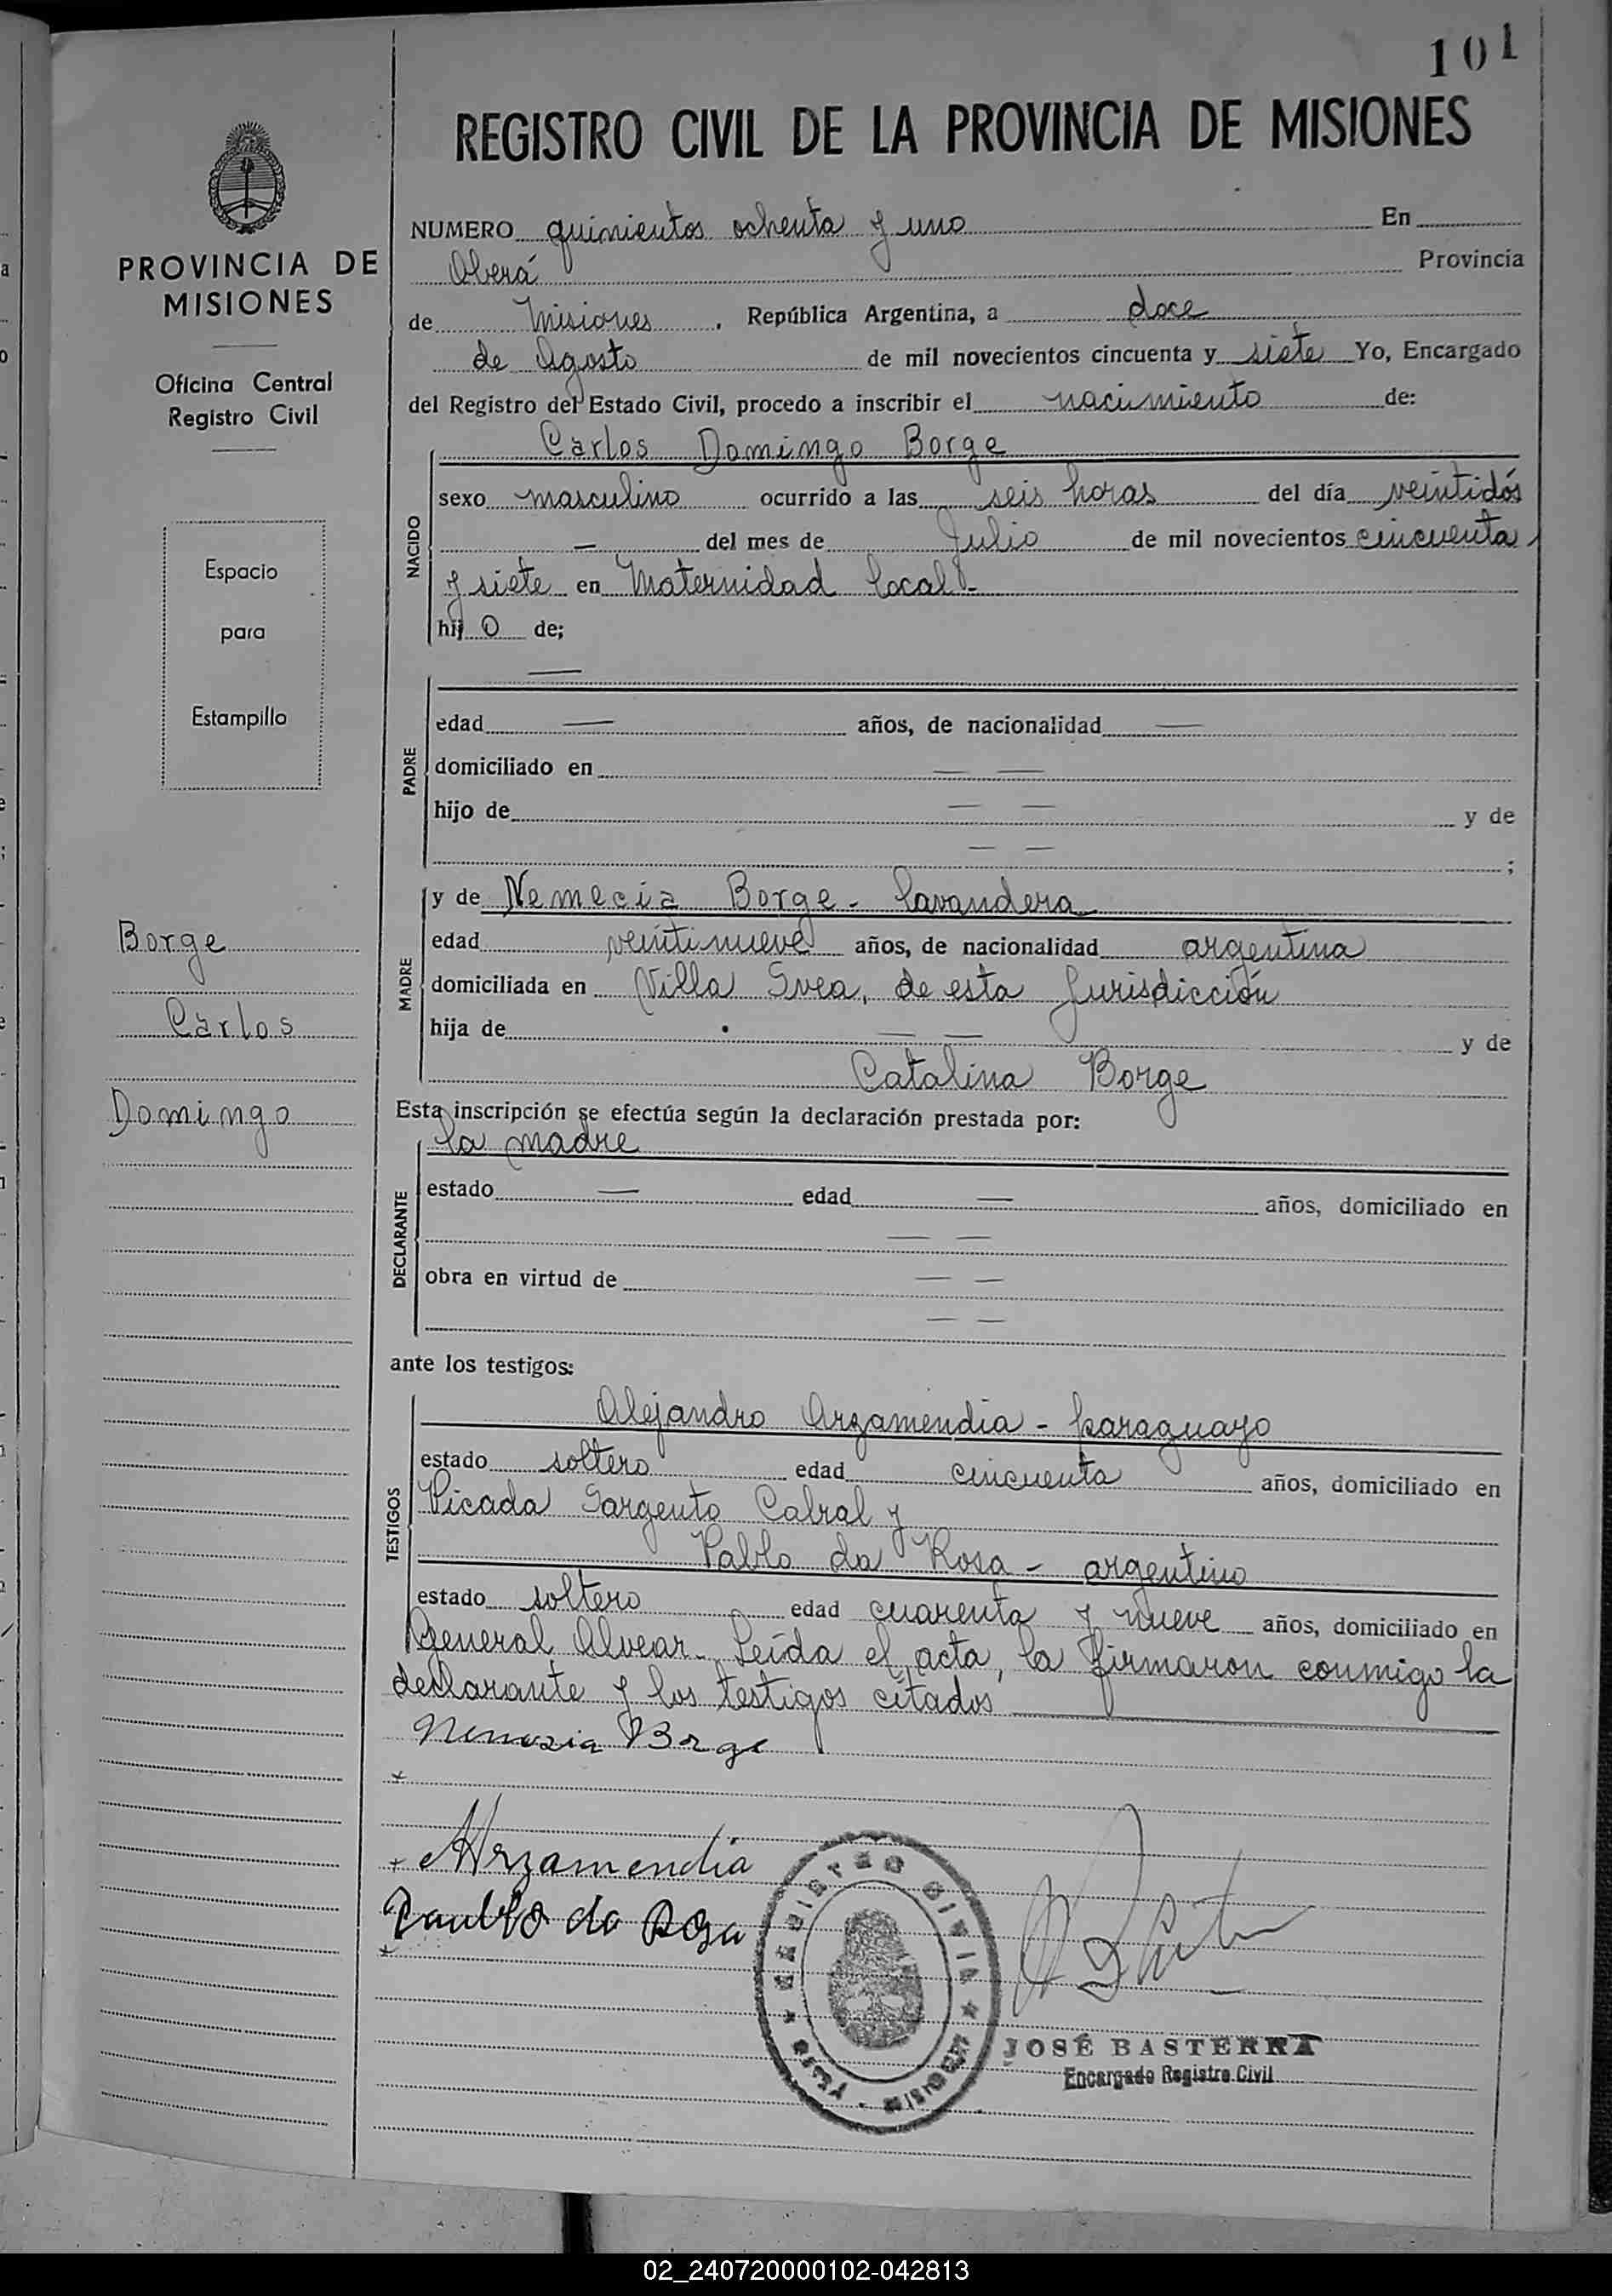 101
REGISTRO CIVIL DE LA PROVINCIA DE MISIONES
PROVINCIA DE
MISIONES
Oficina Central
Registro Civil
Espacio
para
Estampilla
Borge
Carlos
Domingo
NUMERO quinientos ochenta y uno En
Oberá Provincia
de Misiones, República Argentina, a doce
de Agosto de mil novecientos cincuenta y siete Yo, Encargado
del Registro del Estado Civil, procedo a inscribir el nacimiento de:
Carlos Domingo Borge
NACIDO
sexo masculino ocurrido a las seis horas del día veintidós
— del mes de Julio de mil novecientos cincuenta
y siete en Maternidad local.-
hij o de;
PADRE
—
edad — años, de nacionalidad —
domiciliado en — —
hijo de — — y de
— — ;
MADRE
y de Nemecia Borge - lavandera
edad veintinueve años, de nacionalidad argentina
domiciliada en Villa Svea, de esta Jurisdicción
hija de — — y de
Catalina Borge
Esta inscripción se efectúa según la declaración prestada por:
DECLARANTE
la madre
estado — edad — años, domiciliado en
— —
obra en virtud de — —
— —
ante los testigos:
TESTIGOS
Alejandro Arzamendia - paraguayo
estado soltero edad cincuenta años, domiciliado en
Picada Sargento Cabral y
Pablo da Rosa - argentino
estado soltero edad cuarenta y nueve años, domiciliado en
General Alvear. Leída el acta, la firmaron conmigo la
declarante y los testigos citados
Nemesia Borge
Arzamendia
Paublo da Rosa
REGISTRO CIVIL
MISIONES
JOSÉ BASTERRA
Encargado Registro Civil
02_240720000102-042813